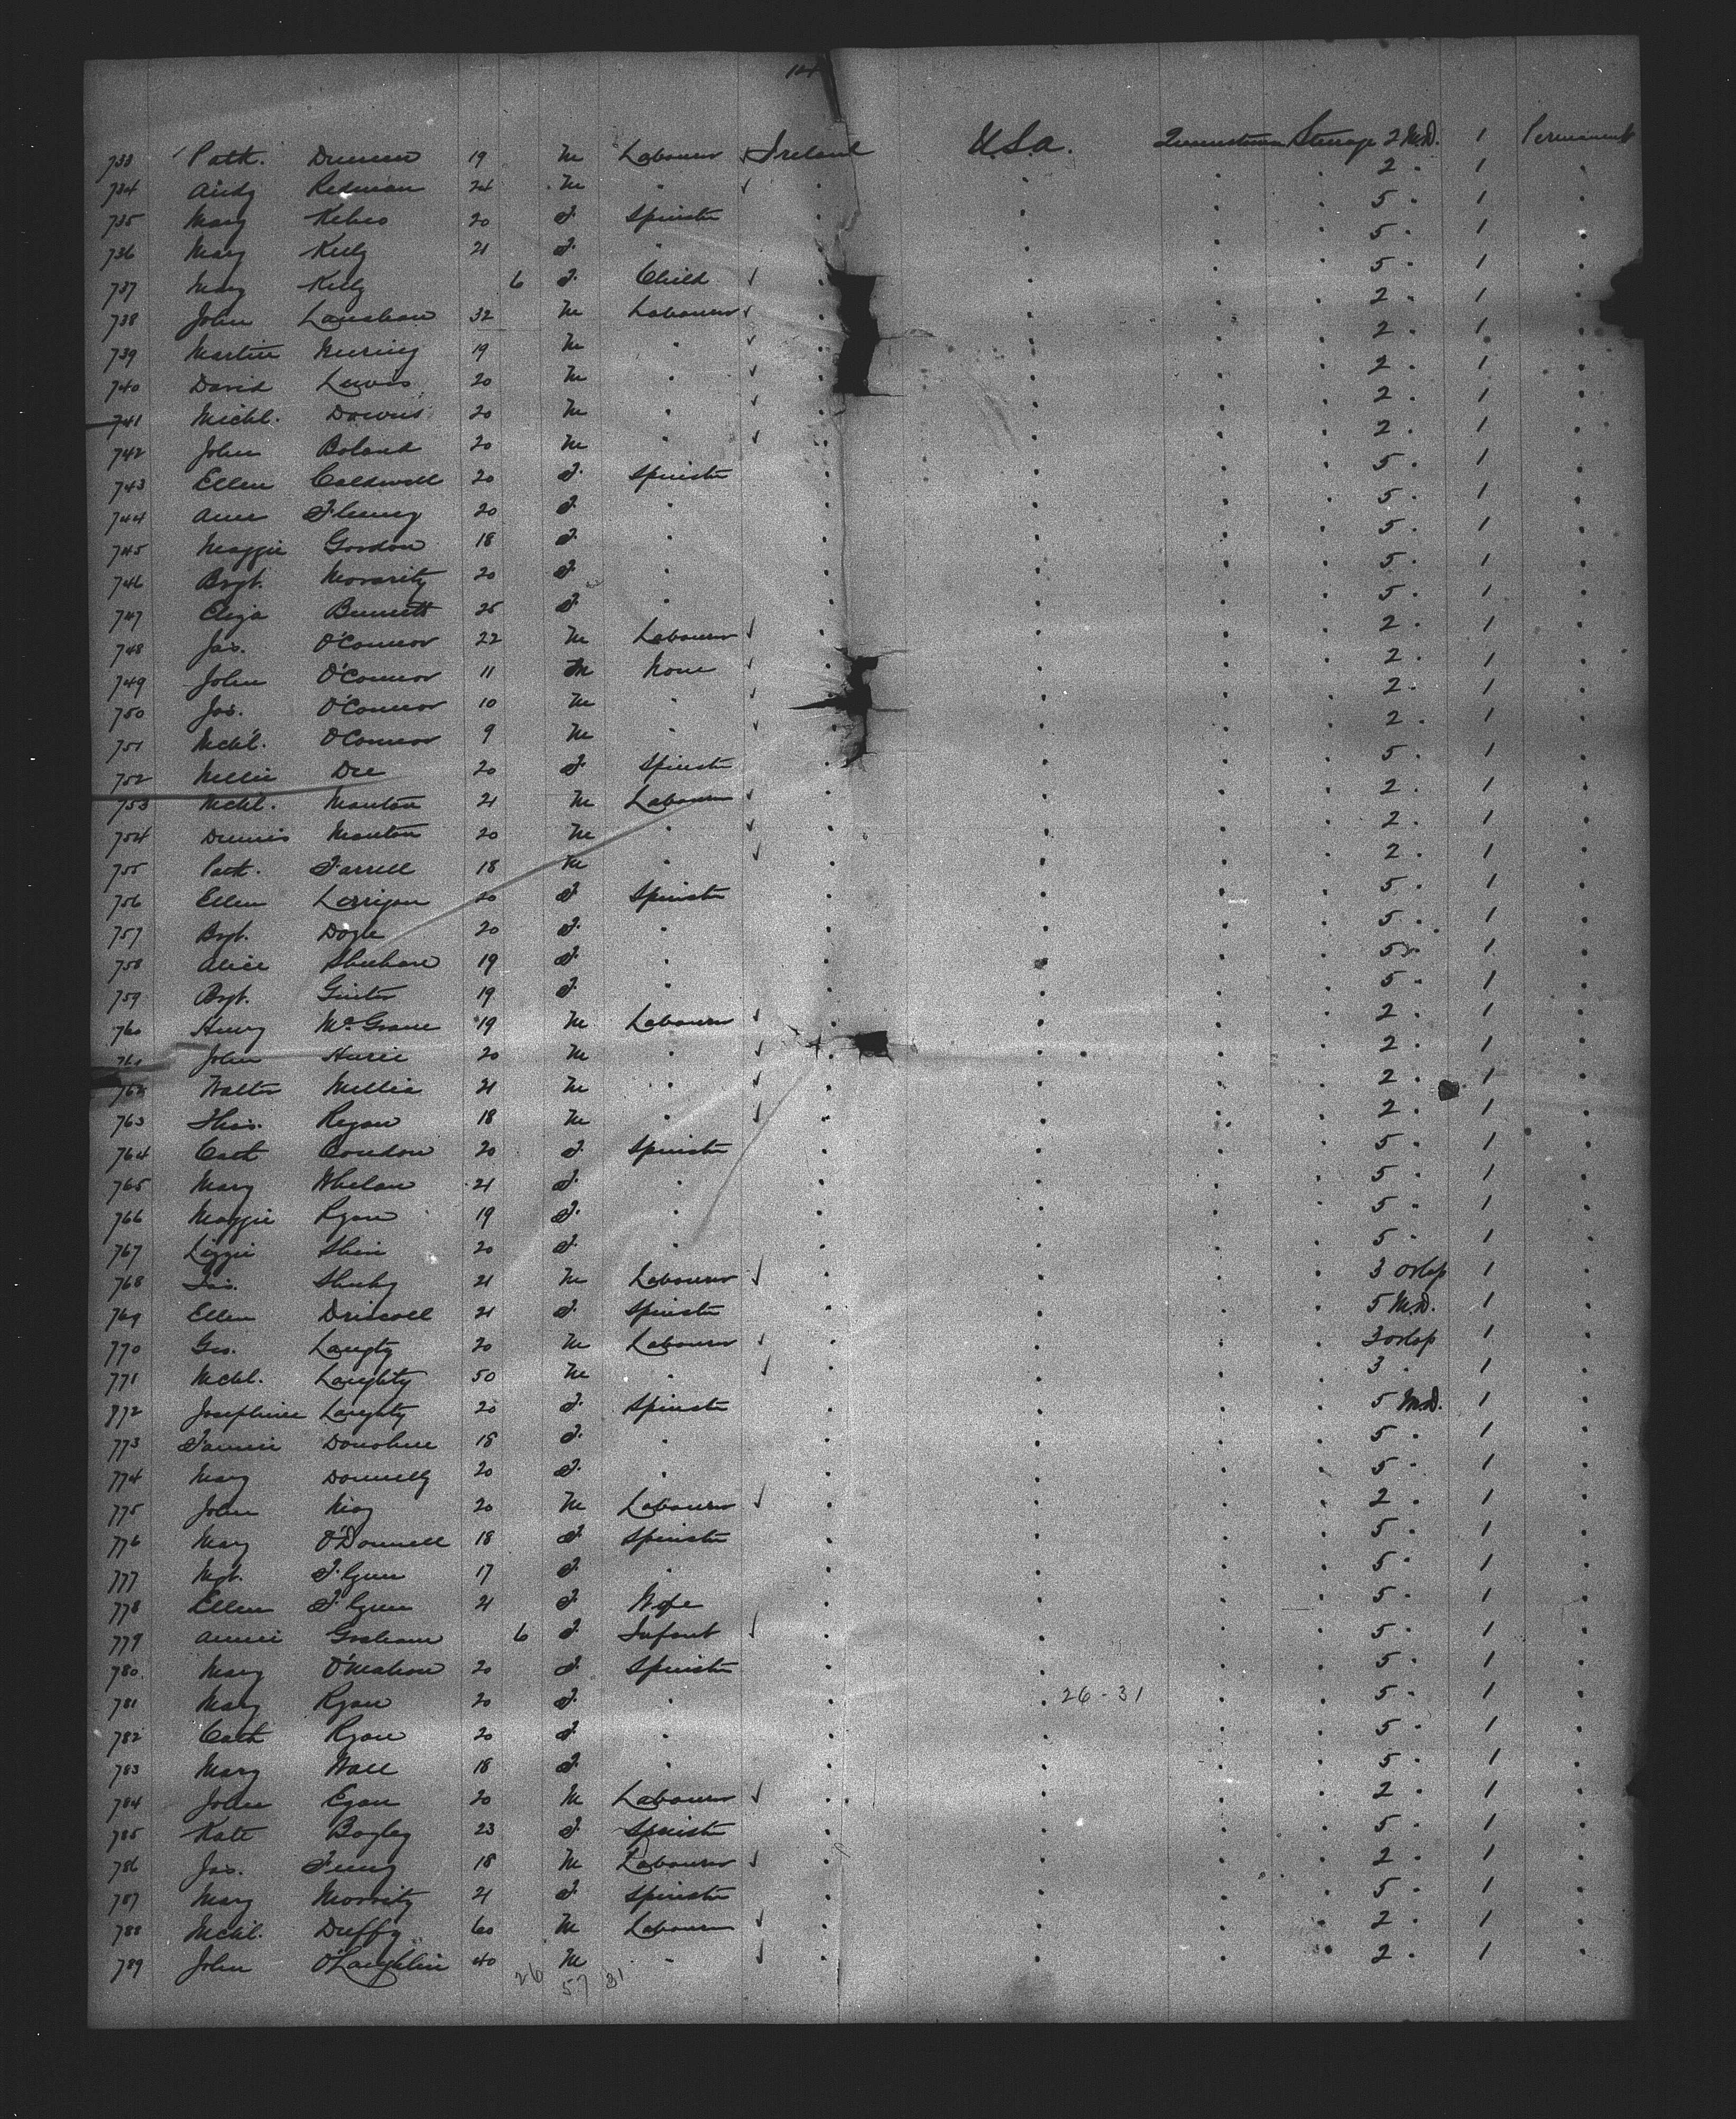 124
733 Patk. 19 M Labourer Ireland U.S.A. Queenstown Steerage 2 M.D. 1 Permanent
734 Andy Redman 24 M " " " " " 2 " 1 "
735 Mary Kehoe 20 F. Spinster " " " " 5 " 1 "
736 Mary Kelly 21 F. " " " " " 5 " 1 "
737 Mary Kelly 6 F. Child " " " " 5 " 1 "
738 John Lanahan 32 M Labourer " " " " 2 " 1 "
739 Martin 19 M " " " " " 2 " 1 "
740 David Lewis 20 M " " " " " 2 " 1 "
741 Michl. Downs 20 M " " " " " 2 " 1 "
742 John Boland 20 M " " " " " 2 " 1 "
743 Ellen Caldwell 20 F. Spinster " " " " 5 " 1 "
744 Anne 20 F. " " " " " 5 " 1 "
745 Maggie Gordon 18 F. " " " " " 5 " 1 "
746 Bgt. Morarity 20 F. " " " " " 5 " 1 "
747 Eliza Bennett 25 F. " " " " " 5 " 1 "
748 Jas. O'Connor 22 M Labourer " " " " 2 " 1 "
749 John O'Connor 11 M None " " " " 2 " 1 "
750 Jas. O'Connor 10 M " " " " " 2 " 1 "
751 Mchl. O'Connor 9 M " " " " " 2 " 1 "
752 Nellie Dee 20 F. Spinster " " " " 5 " 1 "
753 Mchl. Manton 21 M Labourer " " " " 2 " 1 "
754 Dennis Manton 20 M " " " " " 2 " 1 "
755 Patk. Farrell 18 M " " " " " 2 " 1 "
756 Ellen Lorrigan 20 F. Spinster " " " " 5 " 1 "
757 Bgt. Doyle 20 F. " " " " " 5 " 1 "
758 Alice Sheehan 19 F. " " " " " 5 " 1 "
759 Bgt. 19 F. " " " " " 5 " 1 "
760 Henry McGrane 19 M Labourer " " " " 2 " 1 "
761 John 20 M " " " " " 2 " 1 "
762 Walter Mellia 21 M " " " " " 2 " 1 "
763 Thos. Regan 18 M " " " " " 2 " 1 "
764 Cath Condon 20 F. Spinster " " " " 5 " 1 "
765 Mary Whelan 21 F. " " " " " 5 " 1 "
766 Maggie Ryan 19 F. " " " " " 5 " 1 "
767 Lizzie 20 F. " " " " " 5 " 1 "
768 Jas. Sheehy 21 M Labourer " " " " 3 orlop 1 "
769 Ellen Driscoll 21 F. Spinster " " " " 5 M.D. 1 "
770 Geo. Laugty 20 M Labourer " " " " 3 orlop 1 "
771 Mchl. Laughty 50 M " " " " " 3 " 1 "
872 Josephine Laughty 20 F. Spinster " " " " 5 M.D. 1 "
773 Fannie Donohue 18 F. " " " " " 5 " 1 "
774 Mary Donnelly 20 F. " " " " " 5 " 1 "
775 John 20 M Labourer " " " " 2 " 1 "
776 Mary O'Donnell 18 F. Spinster " " " " 5 " 1 "
777 Mgt. Flynn 17 F. " " " " " 5 " 1 "
778 Ellen Flynn 21 F. Wife " " " " 5 " 1 "
779 Annie Graham 6 F. Infant " " " " 5 " 1 "
780 Mary O'Mahon 20 F. Spinster " " " " 5 " 1 "
781 Mary Ryan 20 F. " " " 26-31 " " 5 " 1 "
782 Cath Ryan 20 F. " " " " " 5 " 1 "
783 Mary Wall 18 F. " " " " " 5 " 1 "
784 John Egan 20 M Labourer " " " " 2 " 1 "
785 Kate Bagley 23 F. Spinster " " " " 5 " 1 "
786 Jas. 18 M Labourer " " " " 2 " 1 "
787 Mary Morrity 21 F. Spinster " " " " 5 " 1 "
788 Mchl. Duffy 60 M Labourer " " " " 2 " 1 "
789 John O'Laughlin 40 M " " " " " 2 " 1 "
26 57 31